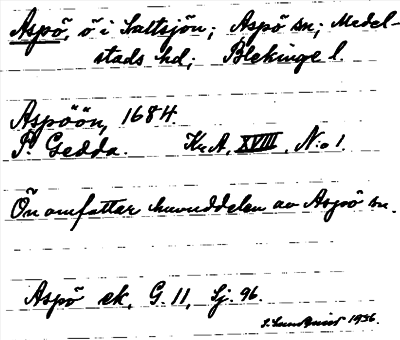 Aspö, ö i Saltsjön; Aspö sn; Medel-
stads hd; Blekinge l.
Aspöön, 1684.
P. Gedda. KrA, XVIII, N:o 1.
Ön omfattar huvuddelen av Aspö sn.
Aspö ek. G. 11, Sj. 96.
S. Sundquist 1936.